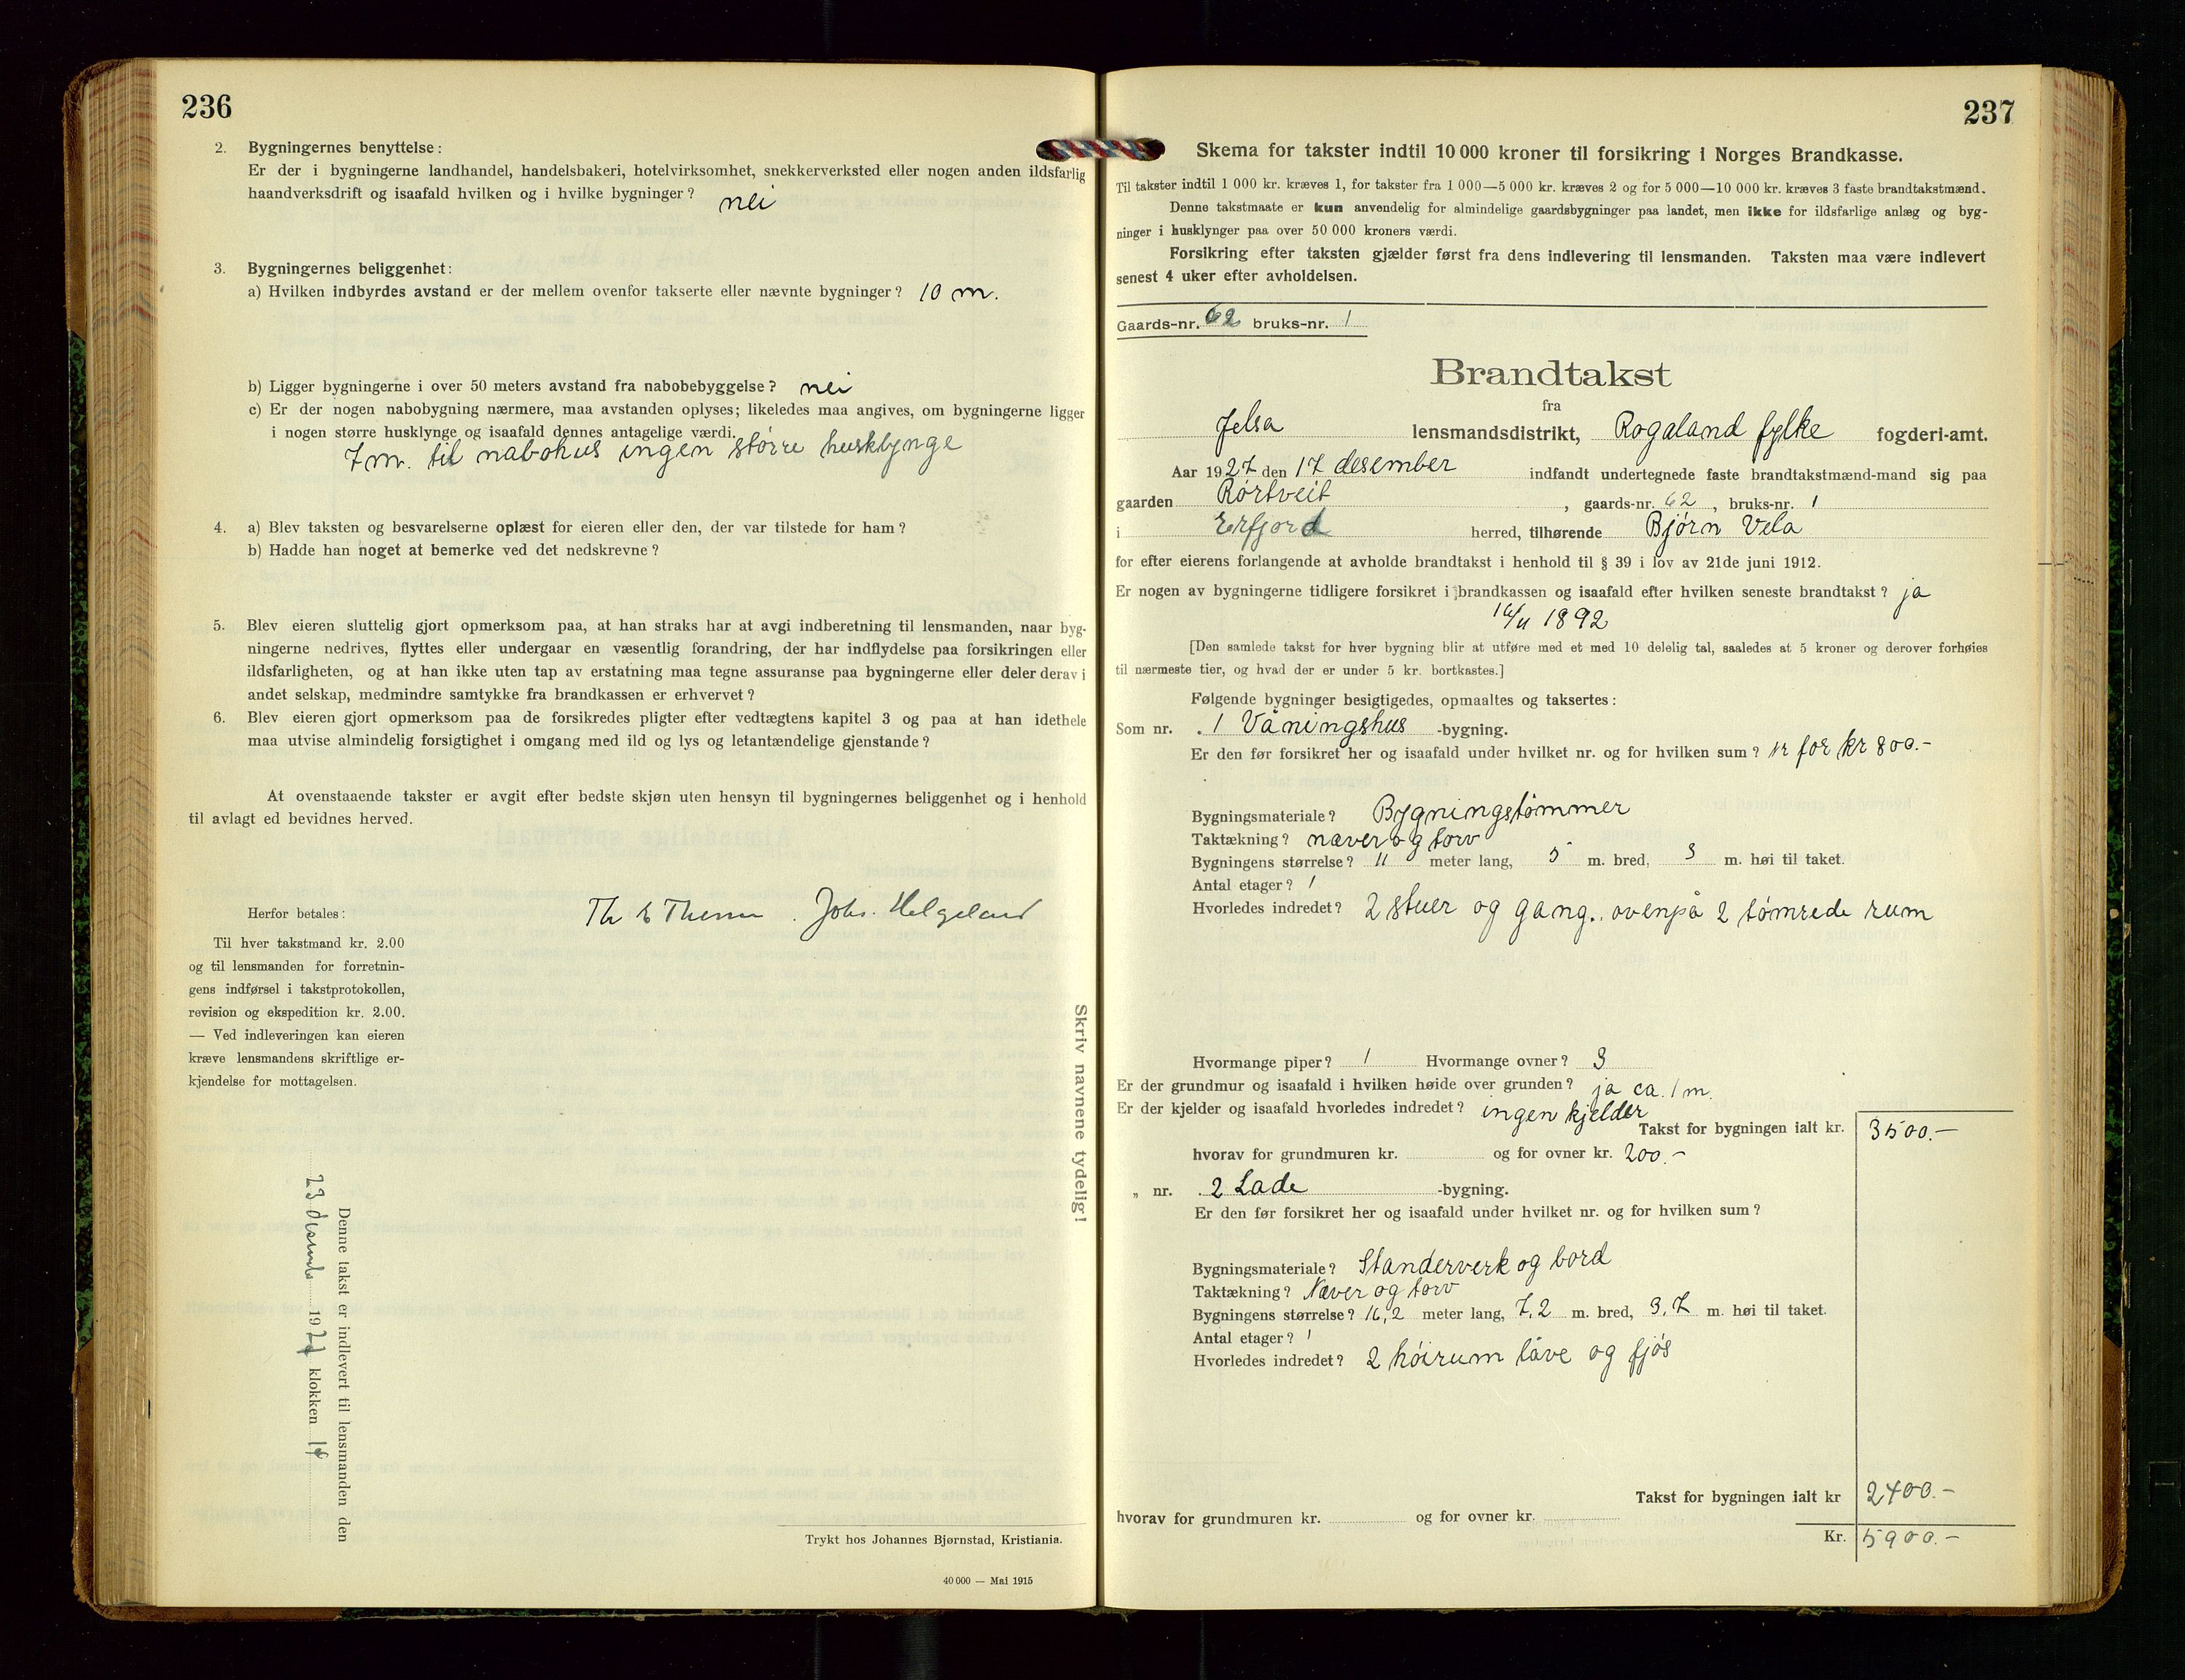 236
2. Bygningernes benyttelse:
Er der i bygningerne landhandel, handelsbakeri, hotelvirksomhet, snekkerverksted eller nogen anden ildsfarlig
haandverksdrift og isaafald hvilken og i hvilke bygninger? nei
3. Bygningernes beliggenhet:
a) Hvilken indbyrdes avstand er der mellem ovenfor takserte eller nævnte bygninger? 10 m.
b) Ligger bygningerne i over 50 meters avstand fra nabobebyggelse? nei
c) Er der nogen nabobygning nærmere, maa avstanden oplyses; likeledes maa angives, om bygningerne ligger
i nogen større husklynge og isaafald dennes antagelige værdi.
7 m. til nabohus ingen större husklynge
4. a) Blev taksten og besvarelserne oplæst for eieren eller den, der var tilstede for ham?
b) Hadde han noget at bemerke ved det nedskrevne?
5. Blev eieren sluttelig gjort opmerksom paa, at han straks har at avgi indberetning til lensmanden, naar byg-
ningerne nedrives, flyttes eller undergaar en væsentlig forandring, der har indflydelse paa forsikringen eller
ildsfarligheten, og at han ikke uten tap av erstatning maa tegne assuranse paa bygningerne eller deler derav i
andet selskap, medmindre samtykke fra brandkassen er erhvervet?
6. Blev eieren gjort opmerksom paa de forsikredes pligter efter vedtægtens kapitel 3 og paa at han idethele
maa utvise almindelig forsigtighet i omgang med ild og lys og letantændelige gjenstande?
At ovenstaaende takster er avgit efter bedste skjøn uten hensyn til bygningernes beliggenhet og i henhold
til avlagt ed bevidnes herved.
Th Johs. Helgeland
Herfor betales:
Til hver takstmand kr. 2.00
og til lensmanden for forretnin-
gens indførsel i takstprotokollen,
revision og ekspedition kr. 2.00.
— Ved indleveringen kan eieren
kræve lensmandens skriftlige er-
kjendelse for mottagelsen.
Skriv navnene tydelig!
Denne takst er indlevert til lensmanden den
23 desemb 1927 klokken 14
Trykt hos Johannes Bjørnstad, Kristiania.
40 000 — Mai 1915
237
Skema for takster indtil 10 000 kroner til forsikring i Norges Brandkasse.
Til takster indtil 1 000 kr. kræves 1, for takster fra 1 000—5 000 kr. kræves 2 og for 5 000—10 000 kr. kræves 3 faste brandtakstmænd.
Denne takstmaate er kun anvendelig for almindelige gaardsbygninger paa landet, men ikke for ildsfarlige anlæg og byg-
ninger i husklynger paa over 50 000 kroners værdi.
Forsikring efter taksten gjælder først fra dens indlevering til lensmanden. Taksten maa være indlevert
senest 4 uker efter avholdelsen.
Gaards-nr. 62 bruks-nr. 1
Brandtakst
fra
Jelsa lensmandsdistrikt, Rogaland fylke fogderi-amt.
Aar 1927 den 17 desember indfandt undertegnede faste brandtakstmænd-mand sig paa
gaarden Rörtveit, gaards-nr. 62, bruks-nr. 1
i Erfjord herred, tilhørende Björn Vela
for efter eierens forlangende at avholde brandtakst i henhold til § 39 i lov av 21de juni 1912.
Er nogen av bygningerne tidligere forsikret i brandkassen og isaafald efter hvilken seneste brandtakst? ja
16/11 1892
[Den samlede takst for hver bygning blir at utføre med et med 10 delelig tal, saaledes at 5 kroner og derover forhøies
til nærmeste tier, og hvad der er under 5 kr. bortkastes.]
Følgende bygninger besigtigedes, opmaaltes og taksertes:
Som nr. 1 Våningshus -bygning.
Er den før forsikret her og isaafald under hvilket nr. og for hvilken sum? for kr 800.-
Bygningsmateriale? Bygningstömmer
Taktækning? næver og torv
Bygningens størrelse? 11 meter lang, 5 m. bred, 3 m. høi til taket.
Antal etager? 1
Hvorledes indredet? 2 stuer og gang., ovenpå 2 tömrede rum
Hvormange piper? 1 Hvormange ovner? 3
Er der grundmur og isaafald i hvilken høide over grunden? ja ca. 1 m.
Er der kjelder og isaafald hvorledes indredet? ingen kjelder
Takst for bygningen ialt kr. 3500.-
hvorav for grundmuren kr. og for ovner kr. 200.-
„ nr. 2 Lade -bygning.
Er den før forsikret her og isaafald under hvilket nr. og for hvilken sum?
Bygningsmateriale? Standerverk og bord
Taktækning? Næver og torv
Bygningens størrelse? 16,2 meter lang, 7,2 m. bred, 3,7 m. høi til taket.
Antal etager? 1
Hvorledes indredet? 2 höirum låve og fjös
Takst for bygningen ialt kr 2400.-
hvorav for grundmuren kr. og for ovner kr.
Kr. 5900.-